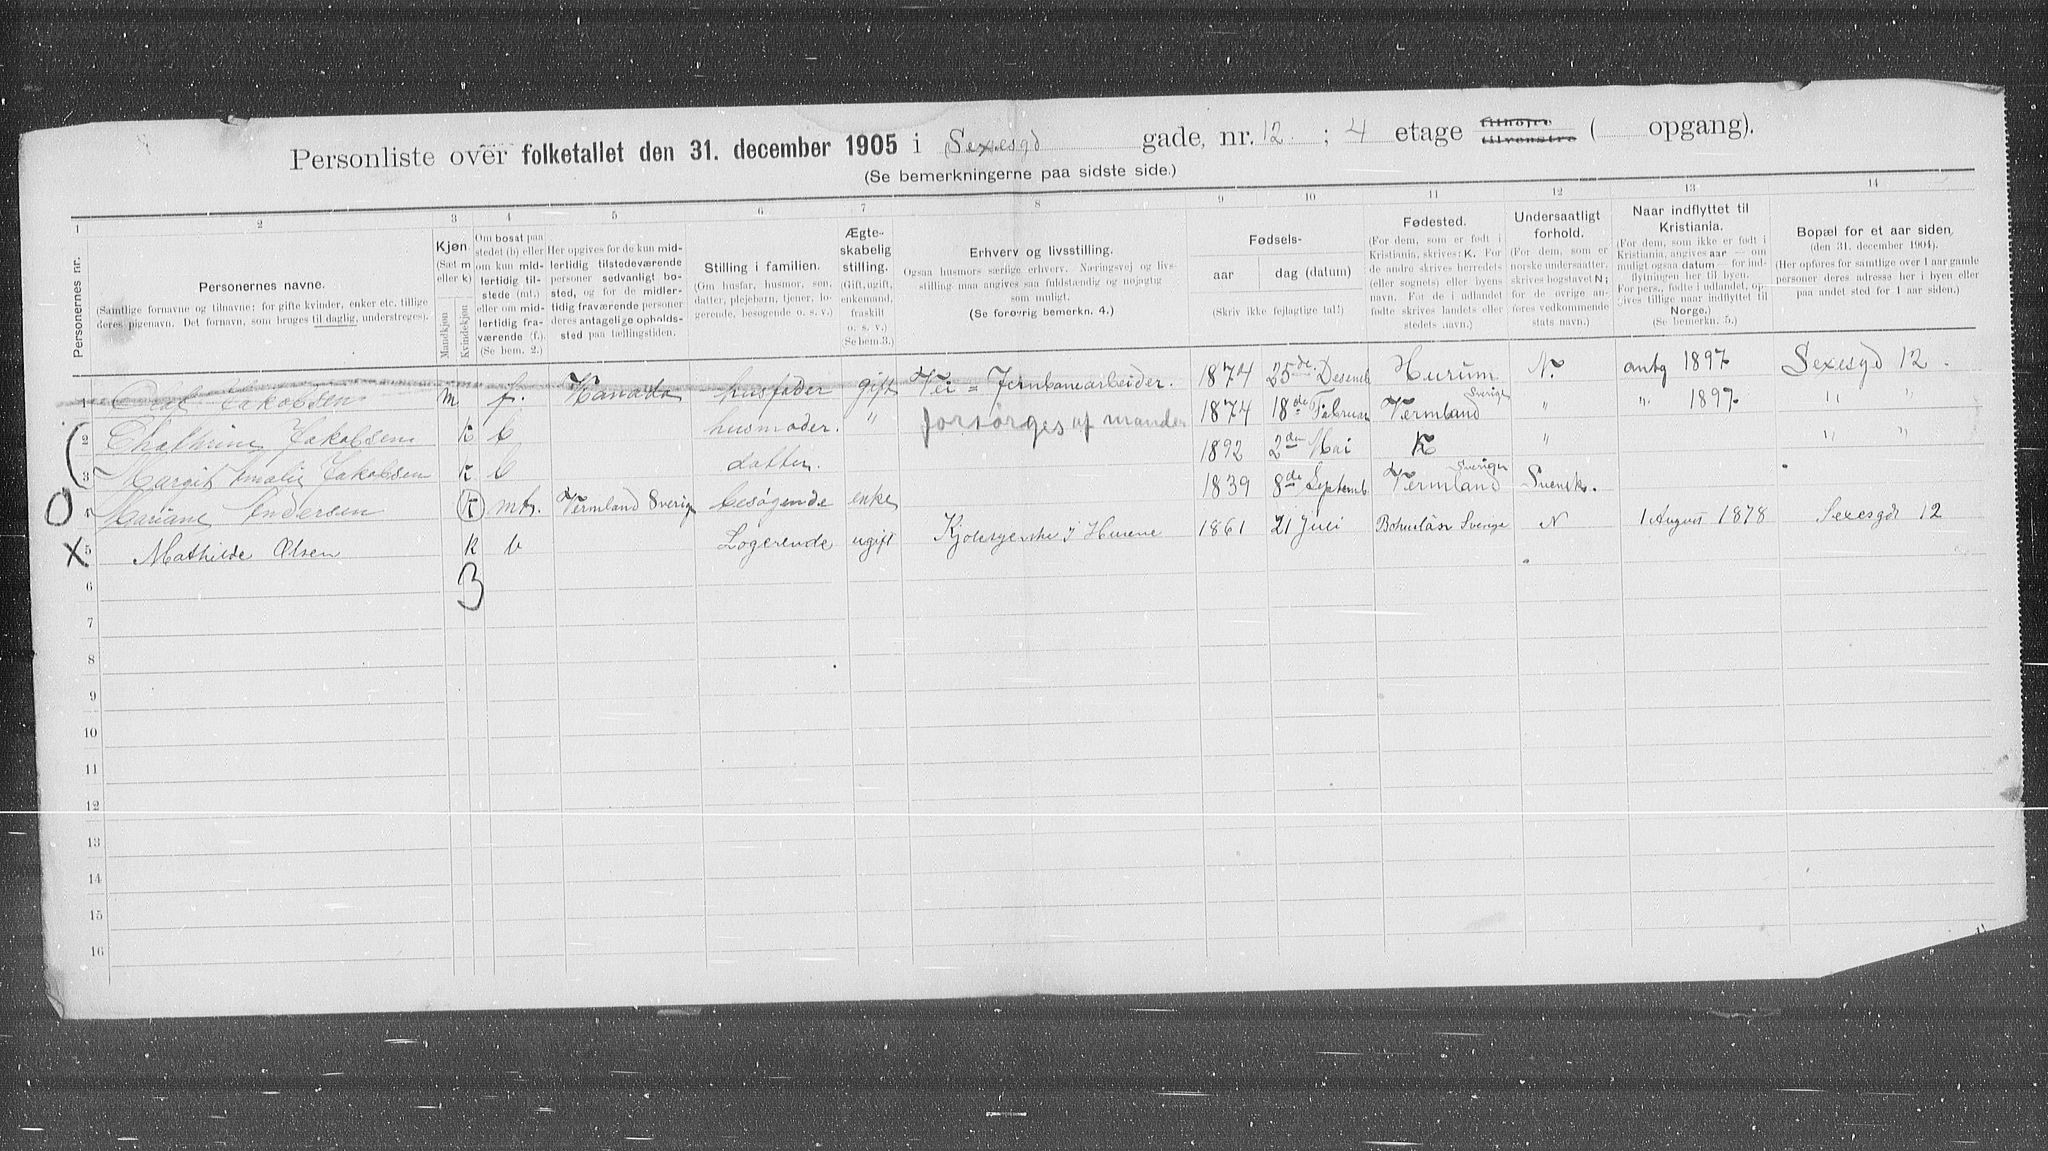 Personliste over folketallet den 31. december 1905 i Sexesgd gade, nr. 12. ; 4 etage tilhøjre tilvenstre ( opgang).
(Se bemerkningerne paa sidste side.)
1 2 3 4 5 6. 7 8 9 10 11 12 13 14
Personernes nr.
Personernes navne.
(Samtlige fornavne og tilnavne; for gifte kvinder, enker etc. tillige deres pigenavn. Det fornavn, som bruges til daglig, understreges).
Kjøn.
(Sæt m eller k)
Mandkjøn
Kvindekjøn
Om bosat paa stedet (b) eller om kun midlertidig tilstede (mt.) eller om midlertidig fraværende (f.). (Se bem. 2.)
Her opgives for de kun midlertidig tilstedeværende personer sedvanligt bosted, og for de midlertidig fraværende personer deres antagelige opholdssted paa tællingstiden.
Stilling i familien.
(Om husfar, husmor, søn, datter, plejebørn, tjener, logerende, besøgende o. s. v.)
Ægteskabelig stilling.
(Gift, ugift, enkemand, fraskilt o. s. v.)
(Se bem. 3.)
Erhverv og livsstilling.
Ogsaa husmors særlige erhverv. Næringsvej og livsstilling maa angives saa fuldstændig og nøjagtig som muligt.
(Se forøvrig bemerkn. 4.)
Fødsels-
aar
dag (datum)
(Skriv ikke fejlagtige tal!)
Fødested.
(For dem, som er født i Kristiania, skrives: K. For de andre skrives herredets (eller sognets) eller byens navn. For de i udlandet fødte skrives landets eller stedets navn.)
Undersaatligt forhold.
(For dem, som er norske undersaatter, skrives bogstavet N; for de øvrige anføres vedkommende stats navn.)
Naar indflyttet til Kristiania.
(For dem, som ikke er født i Kristiania, angives aar — om muligt ogsaa datum — for indflytningen til byen. For pers., født i udlandet, opgives tillige naar indflyttet til Norge.)
(Se bemerkn. 5.)
Bopæl for et aar siden,
(den 31. december 1904).
(Her opføres for samtlige over 1 aar gamle personer deres adresse her i byen eller paa andet sted for 1 aar siden.)
1 Olaf Jakobsen m f. Kanada husfader gift Vei = Jernbanearbeider. 1874 25de Desemb Hurum N. antg 1897 Sexesgd 12.
2 Chathrine Jakobsen k b husmoder. " forsørges af manden 1874 18de Februar Vermland Sverige " " 1897 " "
3 Margit Amalie Jakobsen k b datter. 1892 2den Mai K " " "
O 4 Mariane Andersen k mt. Vermland Sverig besøgende enke 1839 8de Septemb. Vermland Sverige Svensk.
X 5 Mathilde Olsen k b Logerende ugift Kjolesyerske I Husene 1861 21 Juli Bohuslän Sverige N 1 August 1878 Sexesgd 12
3
6
7
8
9
10
11
12
13
14
15
16